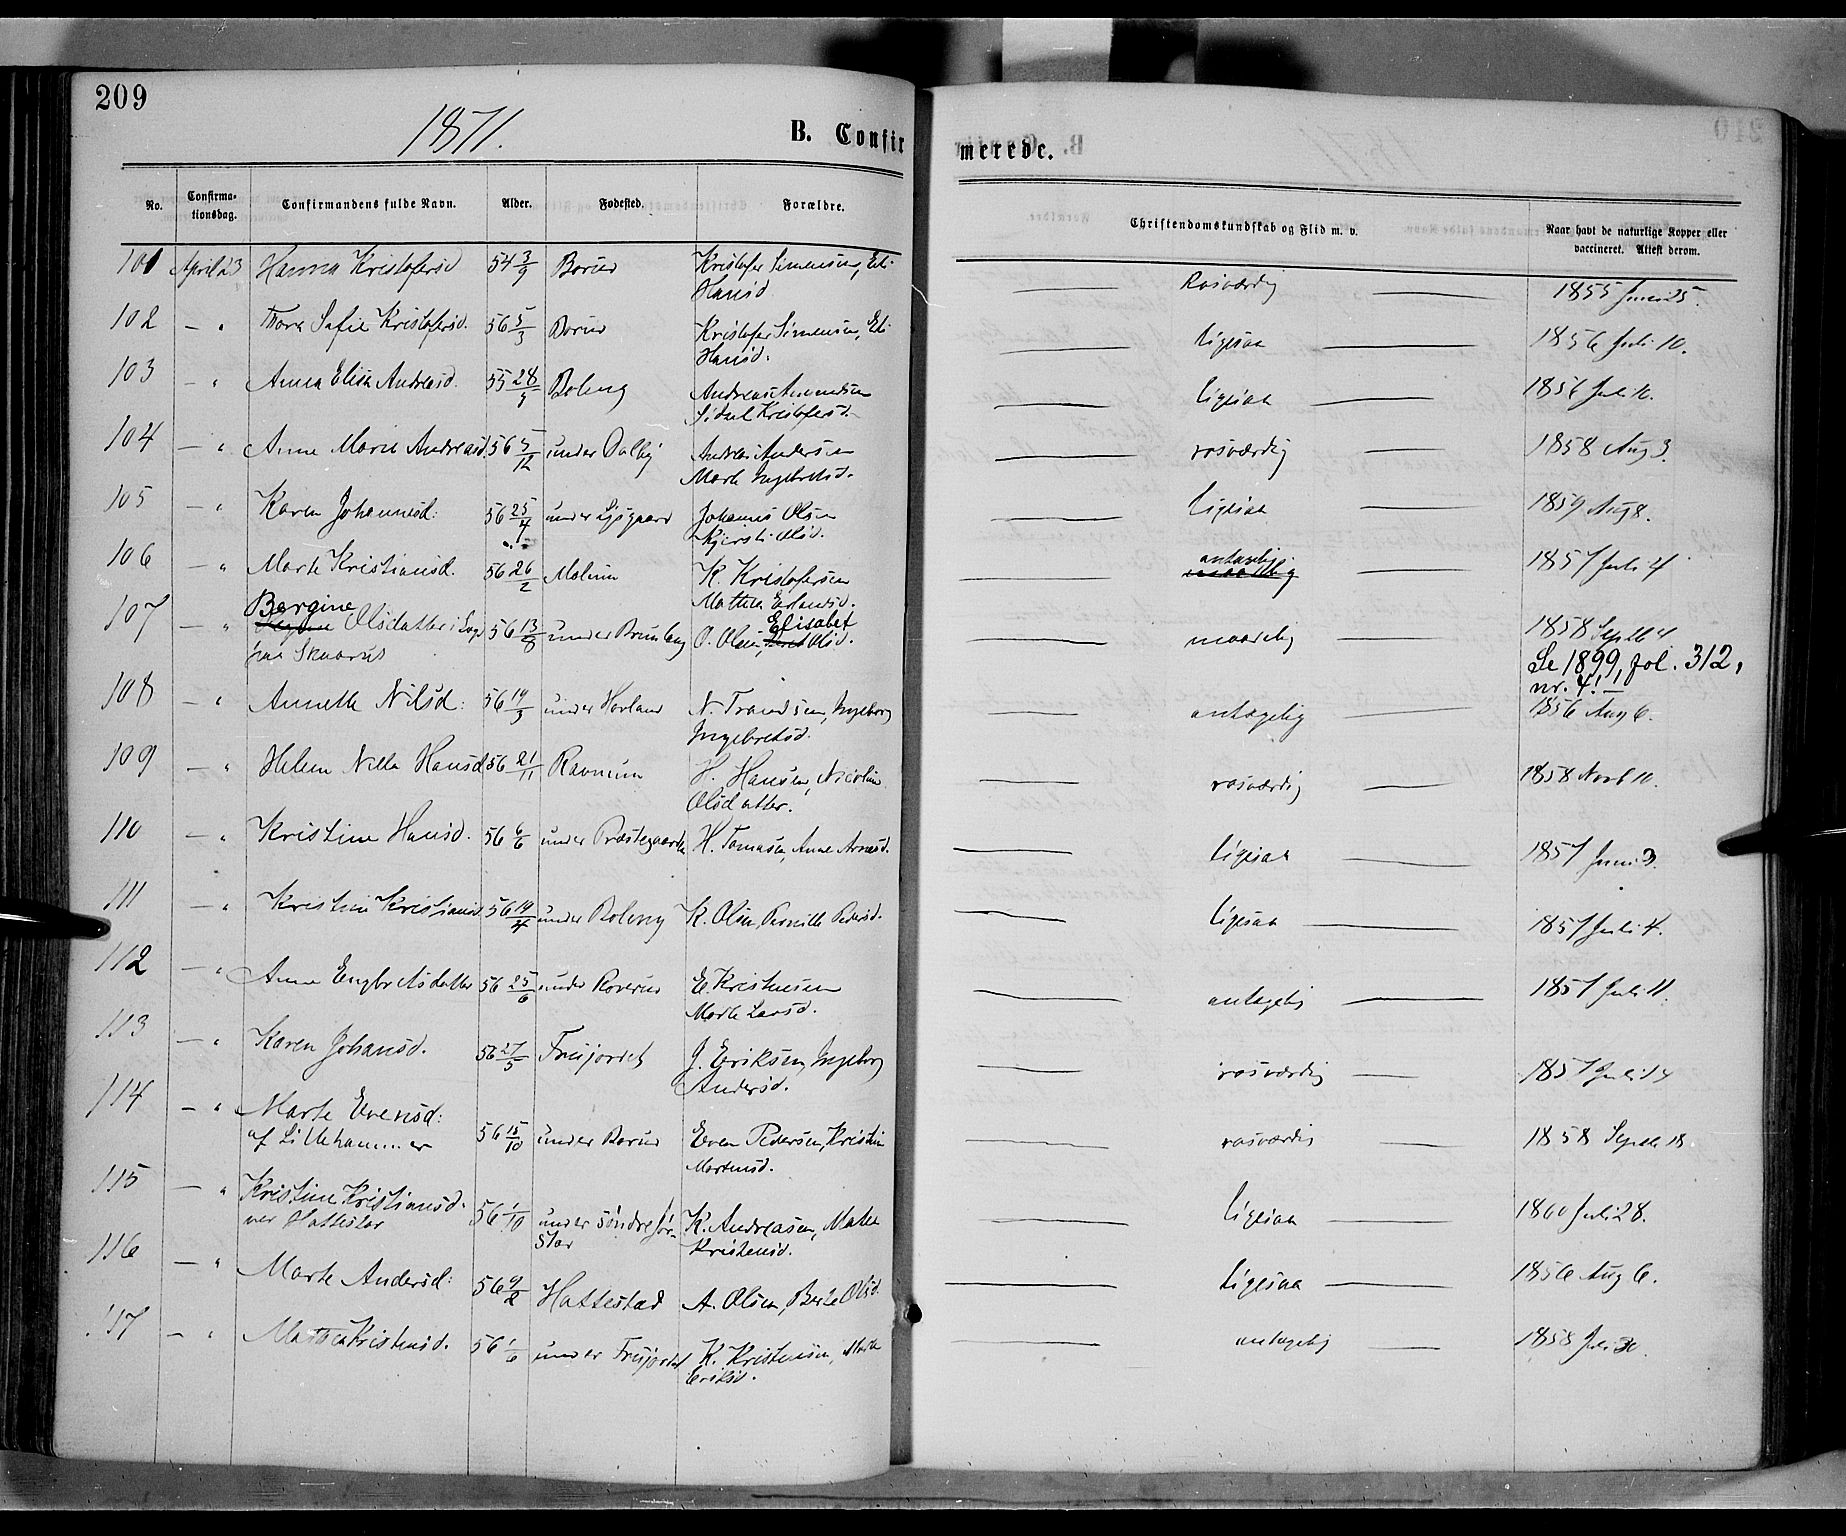 209
1871.
B. Confir
merede.
No.
Confirma-
tionsdag.
Confirmandens fulde Navn.
Alder.
Fødested.
Forældre.
Christendomskundskab og Flid m. v.
Naar havt de naturlige Kopper eller
vaccineret. Attest derom.
101 April 23 Hanna Kristofersd 54 3/9 Borud Kristofer Simensen, Eli Rosværdig 1855 Juni 25.
Hansd
102 — " Thora Sofie Kristofersd. 56 5/3 Borud Kristofer Simensen, Eli ligesaa 1856 Juli 10.
Hansd.
103 — " Anna Elisa Andreasd. 55 28/9 Boleng Andreas Amundsen ligesaa 1856 Juli 10.
Sidsel Kristofersd.
104 — " Anne Marie Andreasd. 56 5/12 under Dalby Andreas Andersen rosværdig 1858 Aug 3.
Marte Ingebretsd.
105 — " Karen Johannesd. 56 25/4 under Lysgaard Johannes Olsen ligesaa 1859 Aug 8.
Kjersti Olsd.
106 — " Marte Kristiansd. 56 26/2 Molum K. Kristofersen antagelig 1857 Juli 4
Mathea Erlandsd.
107 — " Bergine Olsdatter i Logi 56 13/8 under Brunlaug O. Olsen, Elisabet Olsd. maadelig 1858 Septb 4
paa Skaarud
Se 1899, fol. 312,
nr. 4!—
108 — " Annette Nilsd: 56 19/3 under Hovland N. Trondsen, Ingeborg antagelig 1856 Aug 6.
Ingebretsd.
109 — " Helene Nilla Hansd 56 21/11 Ravnum H. Hansen, Nicoline rosværdig 1858 Novb 10.
Olsdatter.
110 — " Kristine Hansd. 56 6/6 under Præstegaarden H. Tomasen, Anne Arnesd. ligesaa 1857 Juni 3
111 — " Kristine Kristiansd 56 19/4 under Boleng K. Olsen, Pernille Pedersd. ligesaa 1857 Juli 4.
112 — " Anne Engbretsdatter 56 25/6 under Roverud E. Kristensen antagelig 1857 Juli 11.
Marte Larsd.
113 — " Karen Johansd. 56 27/5 Frujordet J. Eriksen, Ingeborg rosværdig 1857 Juli 14
Andersd.
114 — " Marte Evensd: 56 15/10 under Borud Even Pedersen, Kristine rosværdig 1858 Septb. 18.
af Lillehammer Mortensd.
115 — " Kristine Kristiansd. 56 1/10 under søndre Jør- K. Andreasen, Mathea ligesaa 1860 Juli 28.
ved Hattestad stad Kristensd.
116 — " Marte Andersd: 56 9/2 Hattestad A. Olsen, Berte Olsd. ligesaa 1856 Aug 6.
117 — " Mathea Kristensd. 56 1/6 under Frujordet K. Kristensen, Marte antagelig 1858 Juli 30.
Eriksd.